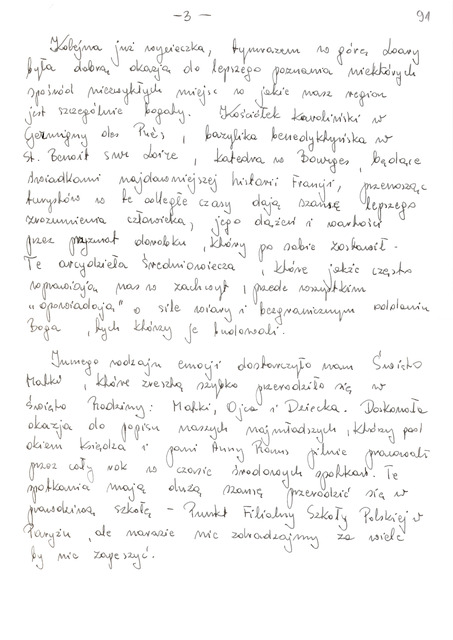 – 3 –
91
Kolejna już wycieczka, tymrazem w górę Loary
była dobrą okazją do lepszego poznania niektórych
spośród niezwykłych miejsc w jakie nasz region
jest szczególnie bogaty. Kościółek Karoliński w
Germigny des Prés, bazylika benedyktyńska w
St. Benoit sur Loire, Katedra w Bourges, będące
świadkami najdawniejszej historii Francji, przenosząc
turystów w te odległe czasy dają szansę lepszego
zrozumienia człowieka, jego dążeń i wartości
przez pryzmat dorobku, który po sobie zostawił.
Te arcydzieła średniowiecza, które jakże często
wprawiają nas w zachwyt, przede wszystkim
"opowiadają" o sile wiary i bezgranicznym oddaniu
Boga, tych którzy je budowali.
Innego rodzaju emocji dostarczyło nam Święto
Matki, które zresztą szybko przerodziło się w
Święto Rodziny: Matki, Ojca i Dziecka. Doskonała
okazja do popisu naszych najmłodszych, którzy pod
okiem księdza i pani Anny pilnie pracowali
przez cały rok w czasie środowych spotkań. Te
spotkania mają dużą szansę przerodzić się w
prawdziwą szkołę – Punkt Filialny Szkoły Polskiej w
Paryżu, ale narazie nie zdradzajmy za wiele
by nie zapeszyć.